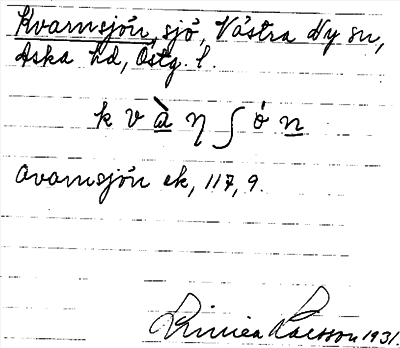 Kvarnsjön, sjö, Västra Ny sn,
Aska hd, Östg. l.
k v à̱ η ʃ ó n̲
Qvarnsjön ek, 117, 9.
Linnea Larsson 1931.